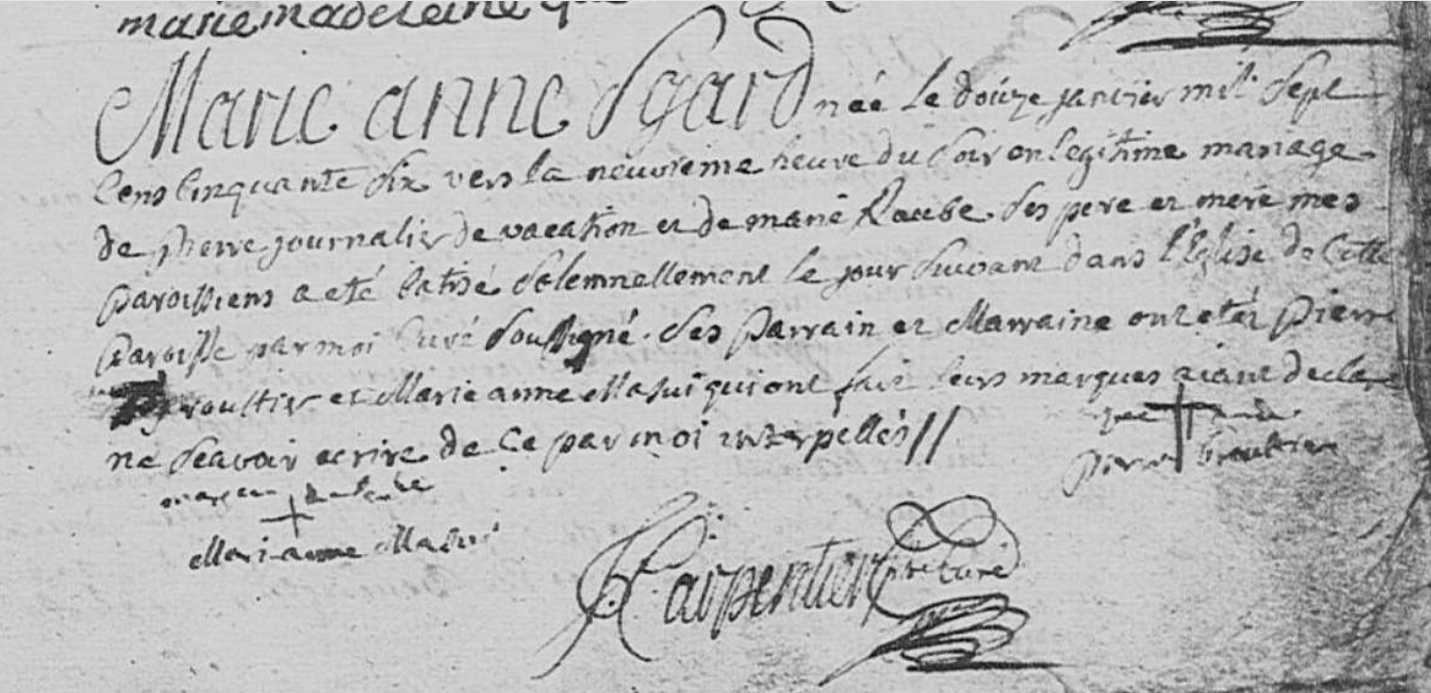 marie madeleine que
Marie anne Sgard née le douze janvier mil sept
cens cinquante six vers la neuvieme heure du soir en legitime mariage
de pierre journalier de vacation et de marie Raube. ses pere et mere mes
paroissiens a eté batisé solemnellement le jour suivant dans l'Eglise de cette
paroisse par moi curé soussigné. ses parrain et Marraine ont etés pierre
et Marie anne Masui qui ont fait leurs marques aiant declaré
ne scavoir ecrire de ce par moi interpellés //
pierre
Mari anne Masui
Carpentier pbre curé